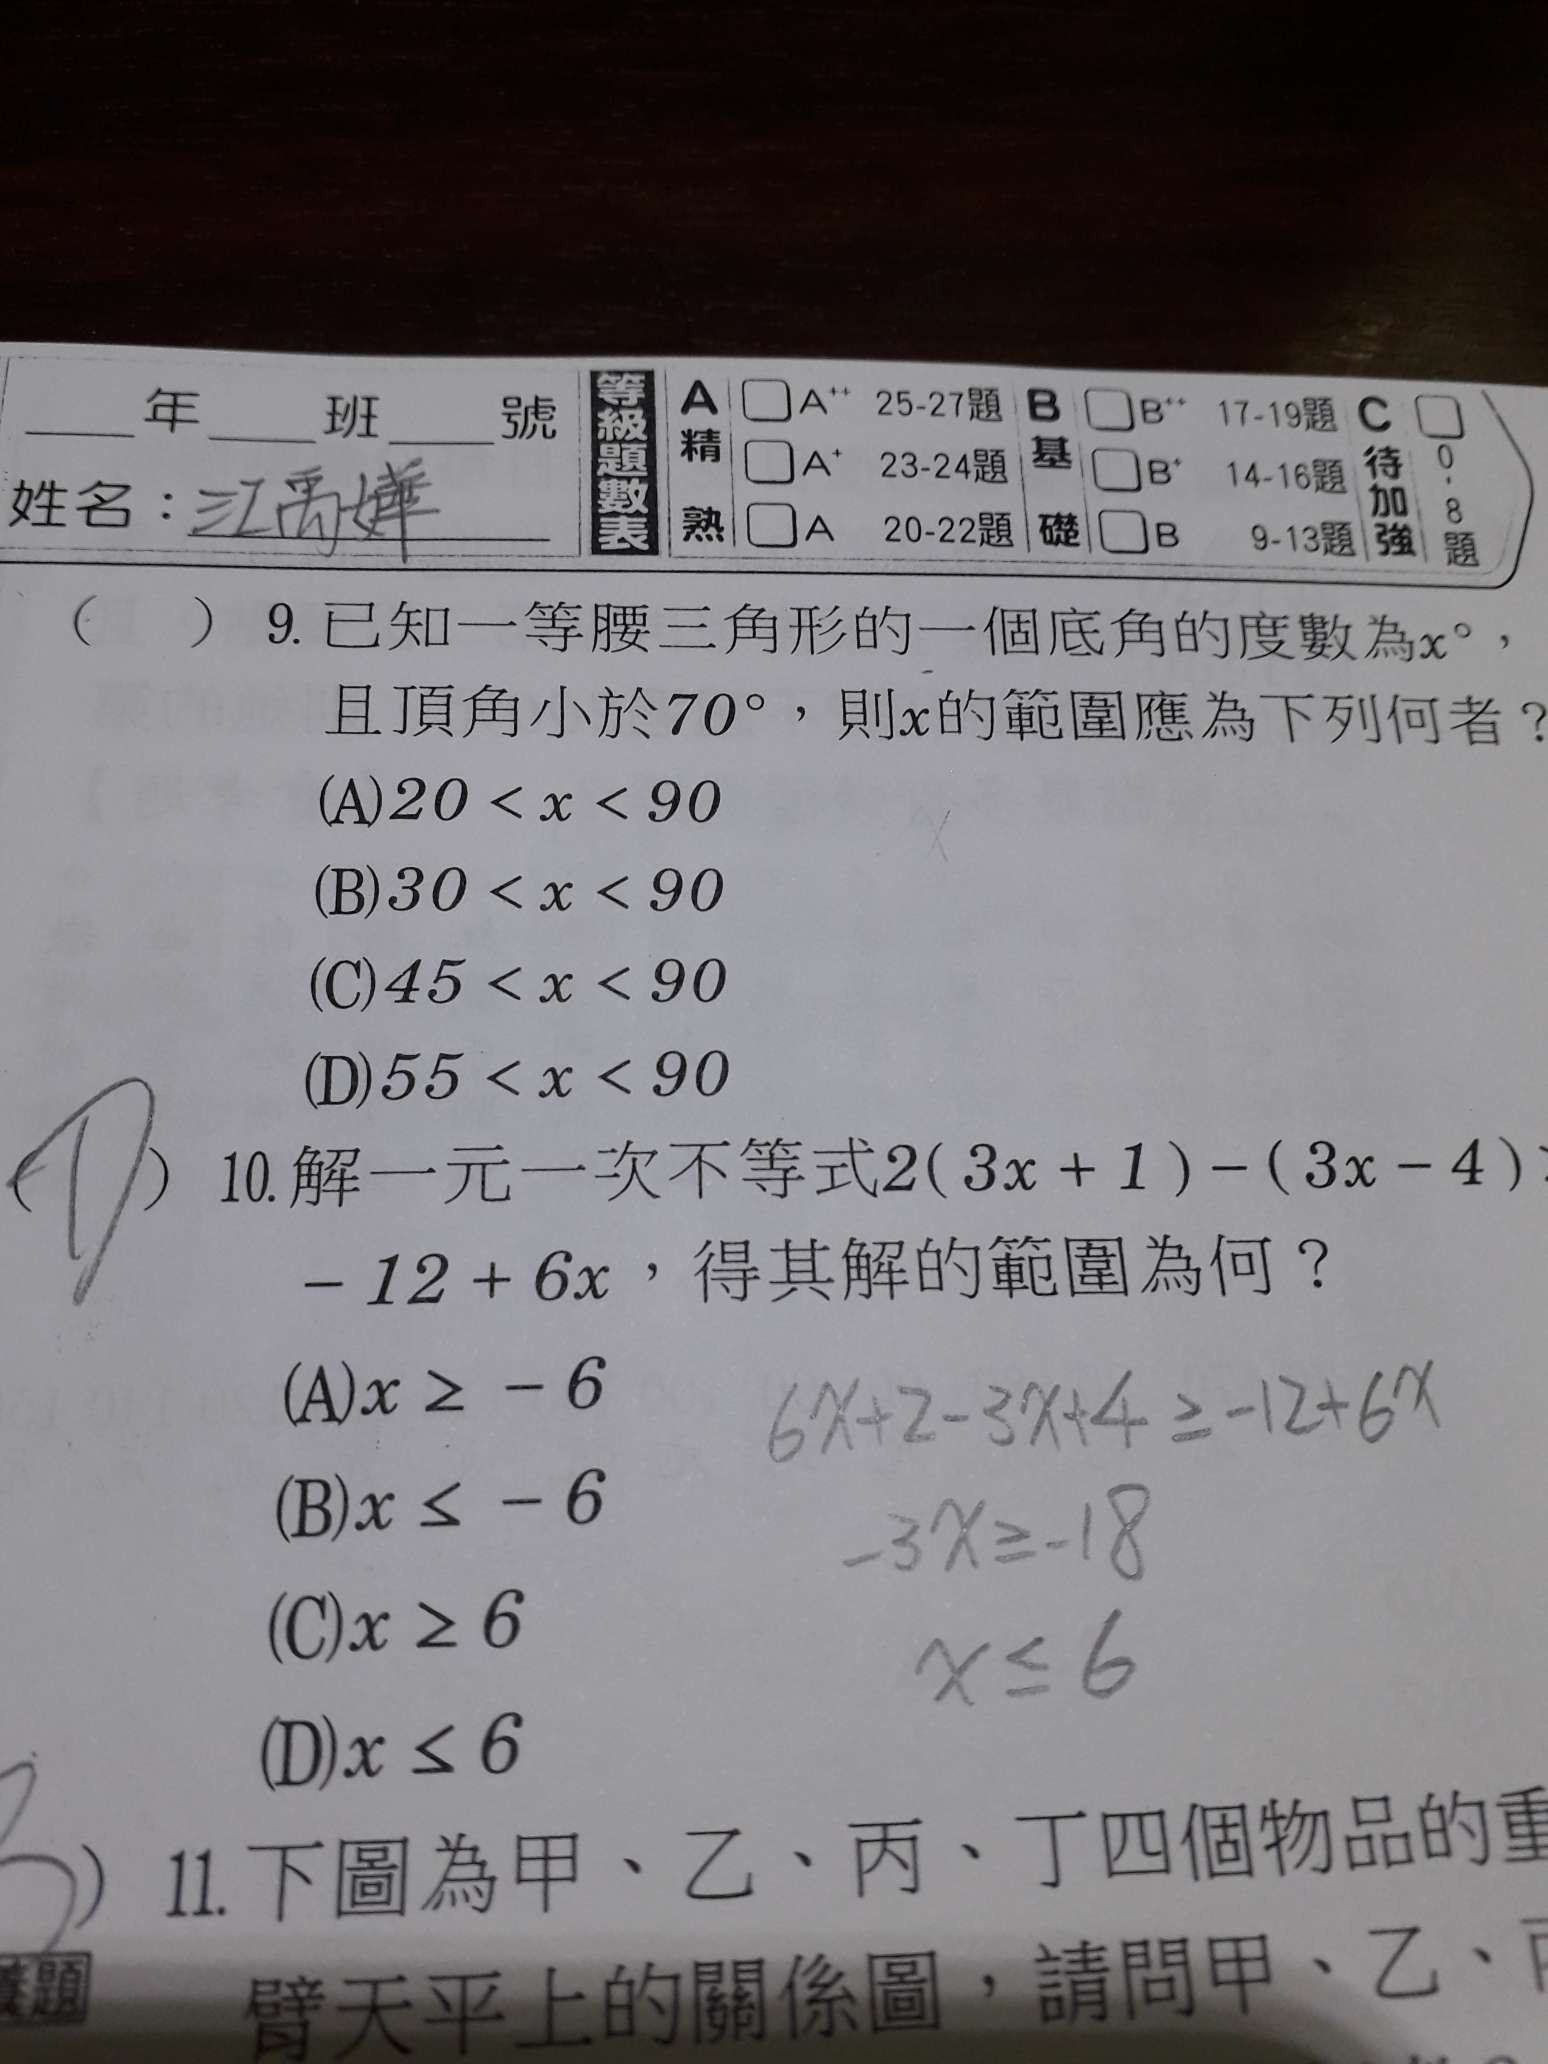 ___年___班___號
姓名：江禹嬅
等級題數表
A 精熟 □A++ 25-27題 □A+ 23-24題 □A 20-22題
B 基礎 □B++ 17-19題 □B+ 14-16題 □B 9-13題
C 待加強 □ 0-8題
（ ）9. 已知一等腰三角形的一個底角的度數為x°，
且頂角小於70°，則x的範圍應為下列何者？
(A)20 < x < 90
(B)30 < x < 90
(C)45 < x < 90
(D)55 < x < 90
（D）10. 解一元一次不等式2( 3x + 1 ) – ( 3x – 4 )
– 12 + 6x，得其解的範圍為何？
(A)x ≥ – 6
(B)x ≤ – 6
(C)x ≥ 6
(D)x ≤ 6
6x+2-3x+4 ≥ -12+6x
-3x ≥ -18
x ≤ 6
）11. 下圖為甲、乙、丙、丁四個物品的重
題
臂天平上的關係圖，請問甲、乙、